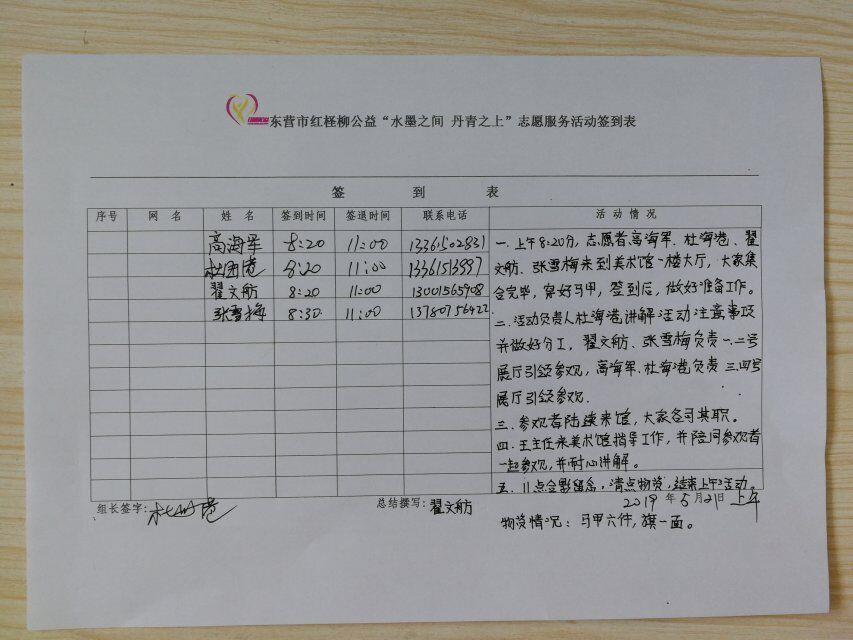 东营市红柽柳公益“水墨之间 丹青之上”志愿服务活动签到表
签 到 表
序号 网 名 姓 名 签到时间 签退时间 联系电话 活 动 情 况
高海军 8:20 11:00 13361502831
杜海港 8:20 11:00 13361513997
翟文舫 8:20 11:00 13001565908
张雪梅 8:30 11:00 13780756422
一.上午8:20分,志愿者高海军、杜海港、翟
文舫、张雪梅来到美术馆一楼大厅,大家集
合完毕,穿好马甲,签到后,做好准备工作。
二.活动负责人杜海港讲解活动注意事项
并做好分工,翟文舫、张雪梅负责一.二号
展厅引领参观,高海军、杜海港负责三.四号
展厅引领参观.
三.参观者陆续来馆,大家各司其职。
四.王主任来美术馆指导工作,并陪同参观者
一起参观,并耐心讲解。
五.11点合影留念,清点物资,结束上午活动。
组长签字: 杜海港 总结撰写: 翟文舫 2019 年 5 月 21 日 上午
物资情况:马甲六件,旗一面。